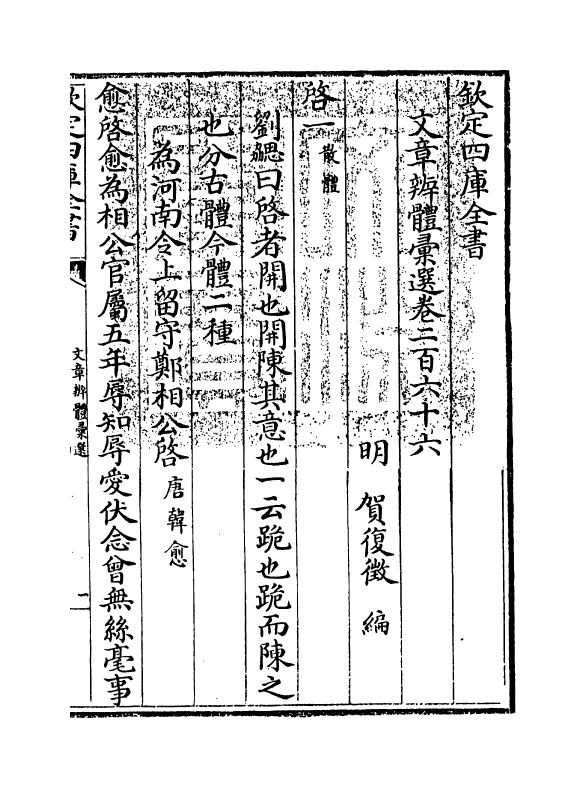 欽定四庫全書
文章辨體彙選卷二百六十六
明 賀復徵 編
啓一散體
劉勰曰啓者開也開陳其意也一云跪也跪而陳之
也分古體今體二種
為河南令上留守鄭相公啓唐韓愈
愈啓愈為相公官屬五年辱知辱愛伏念曾無絲毫事
欽定四庫全書
文章辨體彙選
一